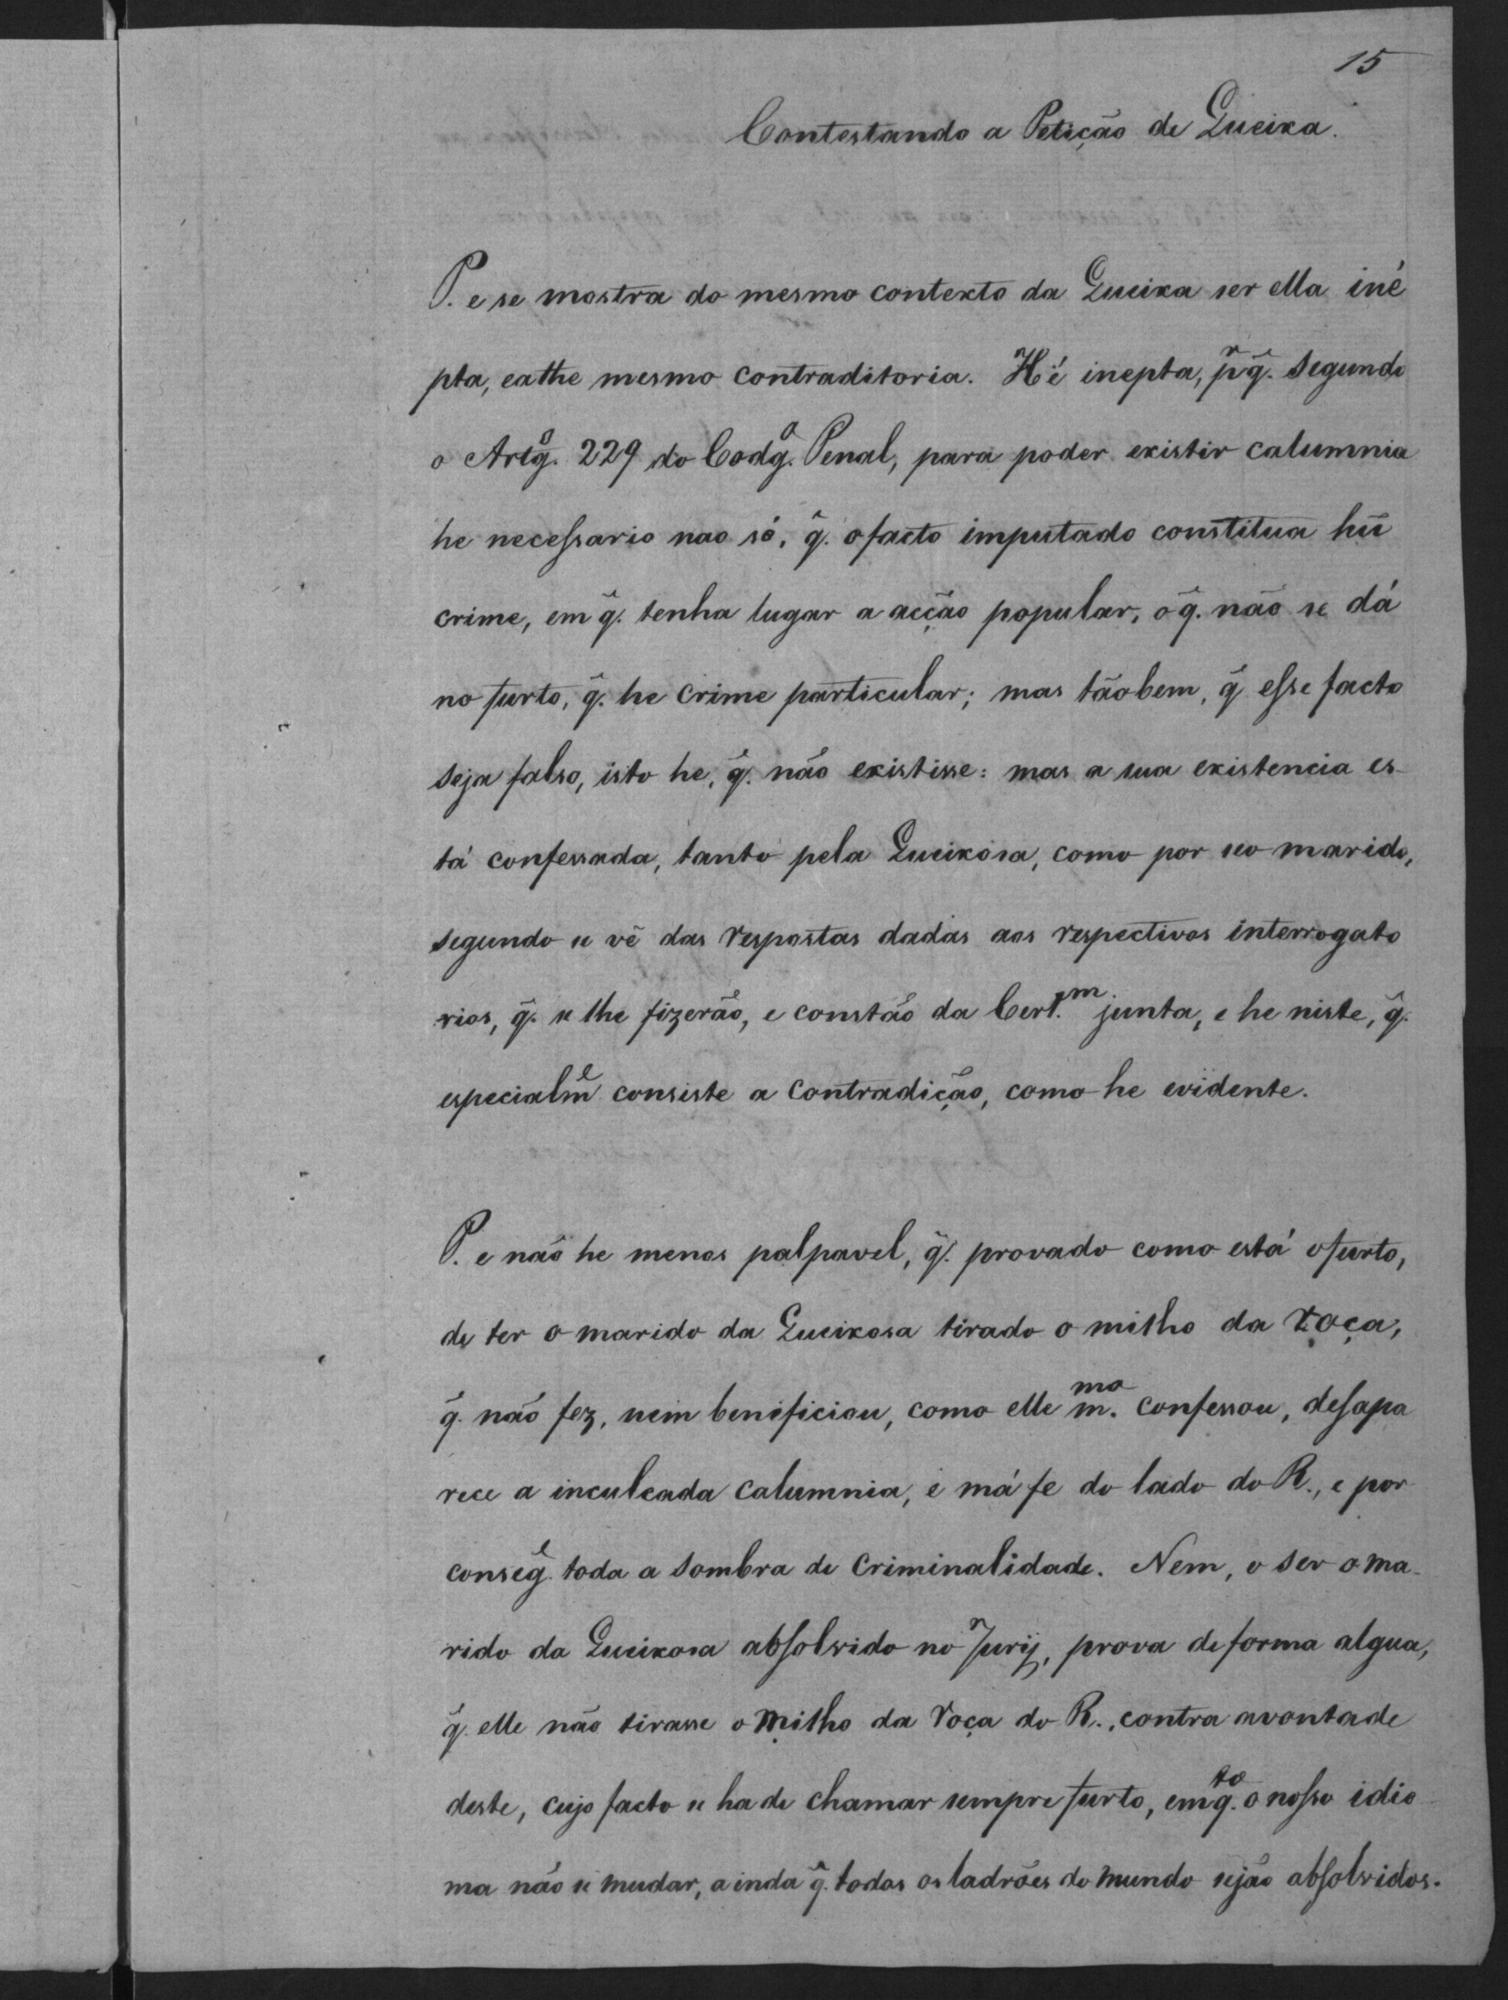 15
Contestando a Petição de Queixa.
P. e se mostra do mesmo contexto da Queixa ser ella iné
pta, eathe mesmo contraditoria. Hé inepta, pʳ q̃. segundo
o Artgº. 229 do Codgº. Penal, para poder existir calumnia
he necessario nao só, q̃. o facto imputado constitua hũ
crime, em q̃. tenha lugar a acção popular, o q̃. não se dá
no furto, q̃. he crime particular; mas tãobem, q̃ esse facto
seja falso, isto he, q̃. não existisse: mas a sua existencia es-
tá confessada, tanto pela Queixosa, como por seo marido,
segundo se vê das respostas dadas aos respectivos interrogato
rios, q̃. se lhe fizerão, e constão da Cert.ᵐ junta, e he niste, q̃.
especialm̃ᵉ consiste a contradição, como he evidente.
P. e não he menos palpavel, q̃. provado como está o furto,
de ter o marido da Queixosa tirado o milho da roça,
q̃. não fez, nem benificiou, como elle m.ᵐᵒ confessou, desapa
rece a inculcada calumnia, e má fe do lado do R., e por
conseg̃ᵉ. toda a sombra de criminalidade. Nem, o ser o ma-
rido da Queixosa absolvido no Jurij, prova de forma algua,
q̃. elle não tirasse o milho da roça do R., contra avontade
deste, cujo facto se ha de chamar sempre furto, emq.ᵗᵒ o nosso idio
ma não se mudar, ainda q̃. todos os ladrões do mundo sejão absolvidos.